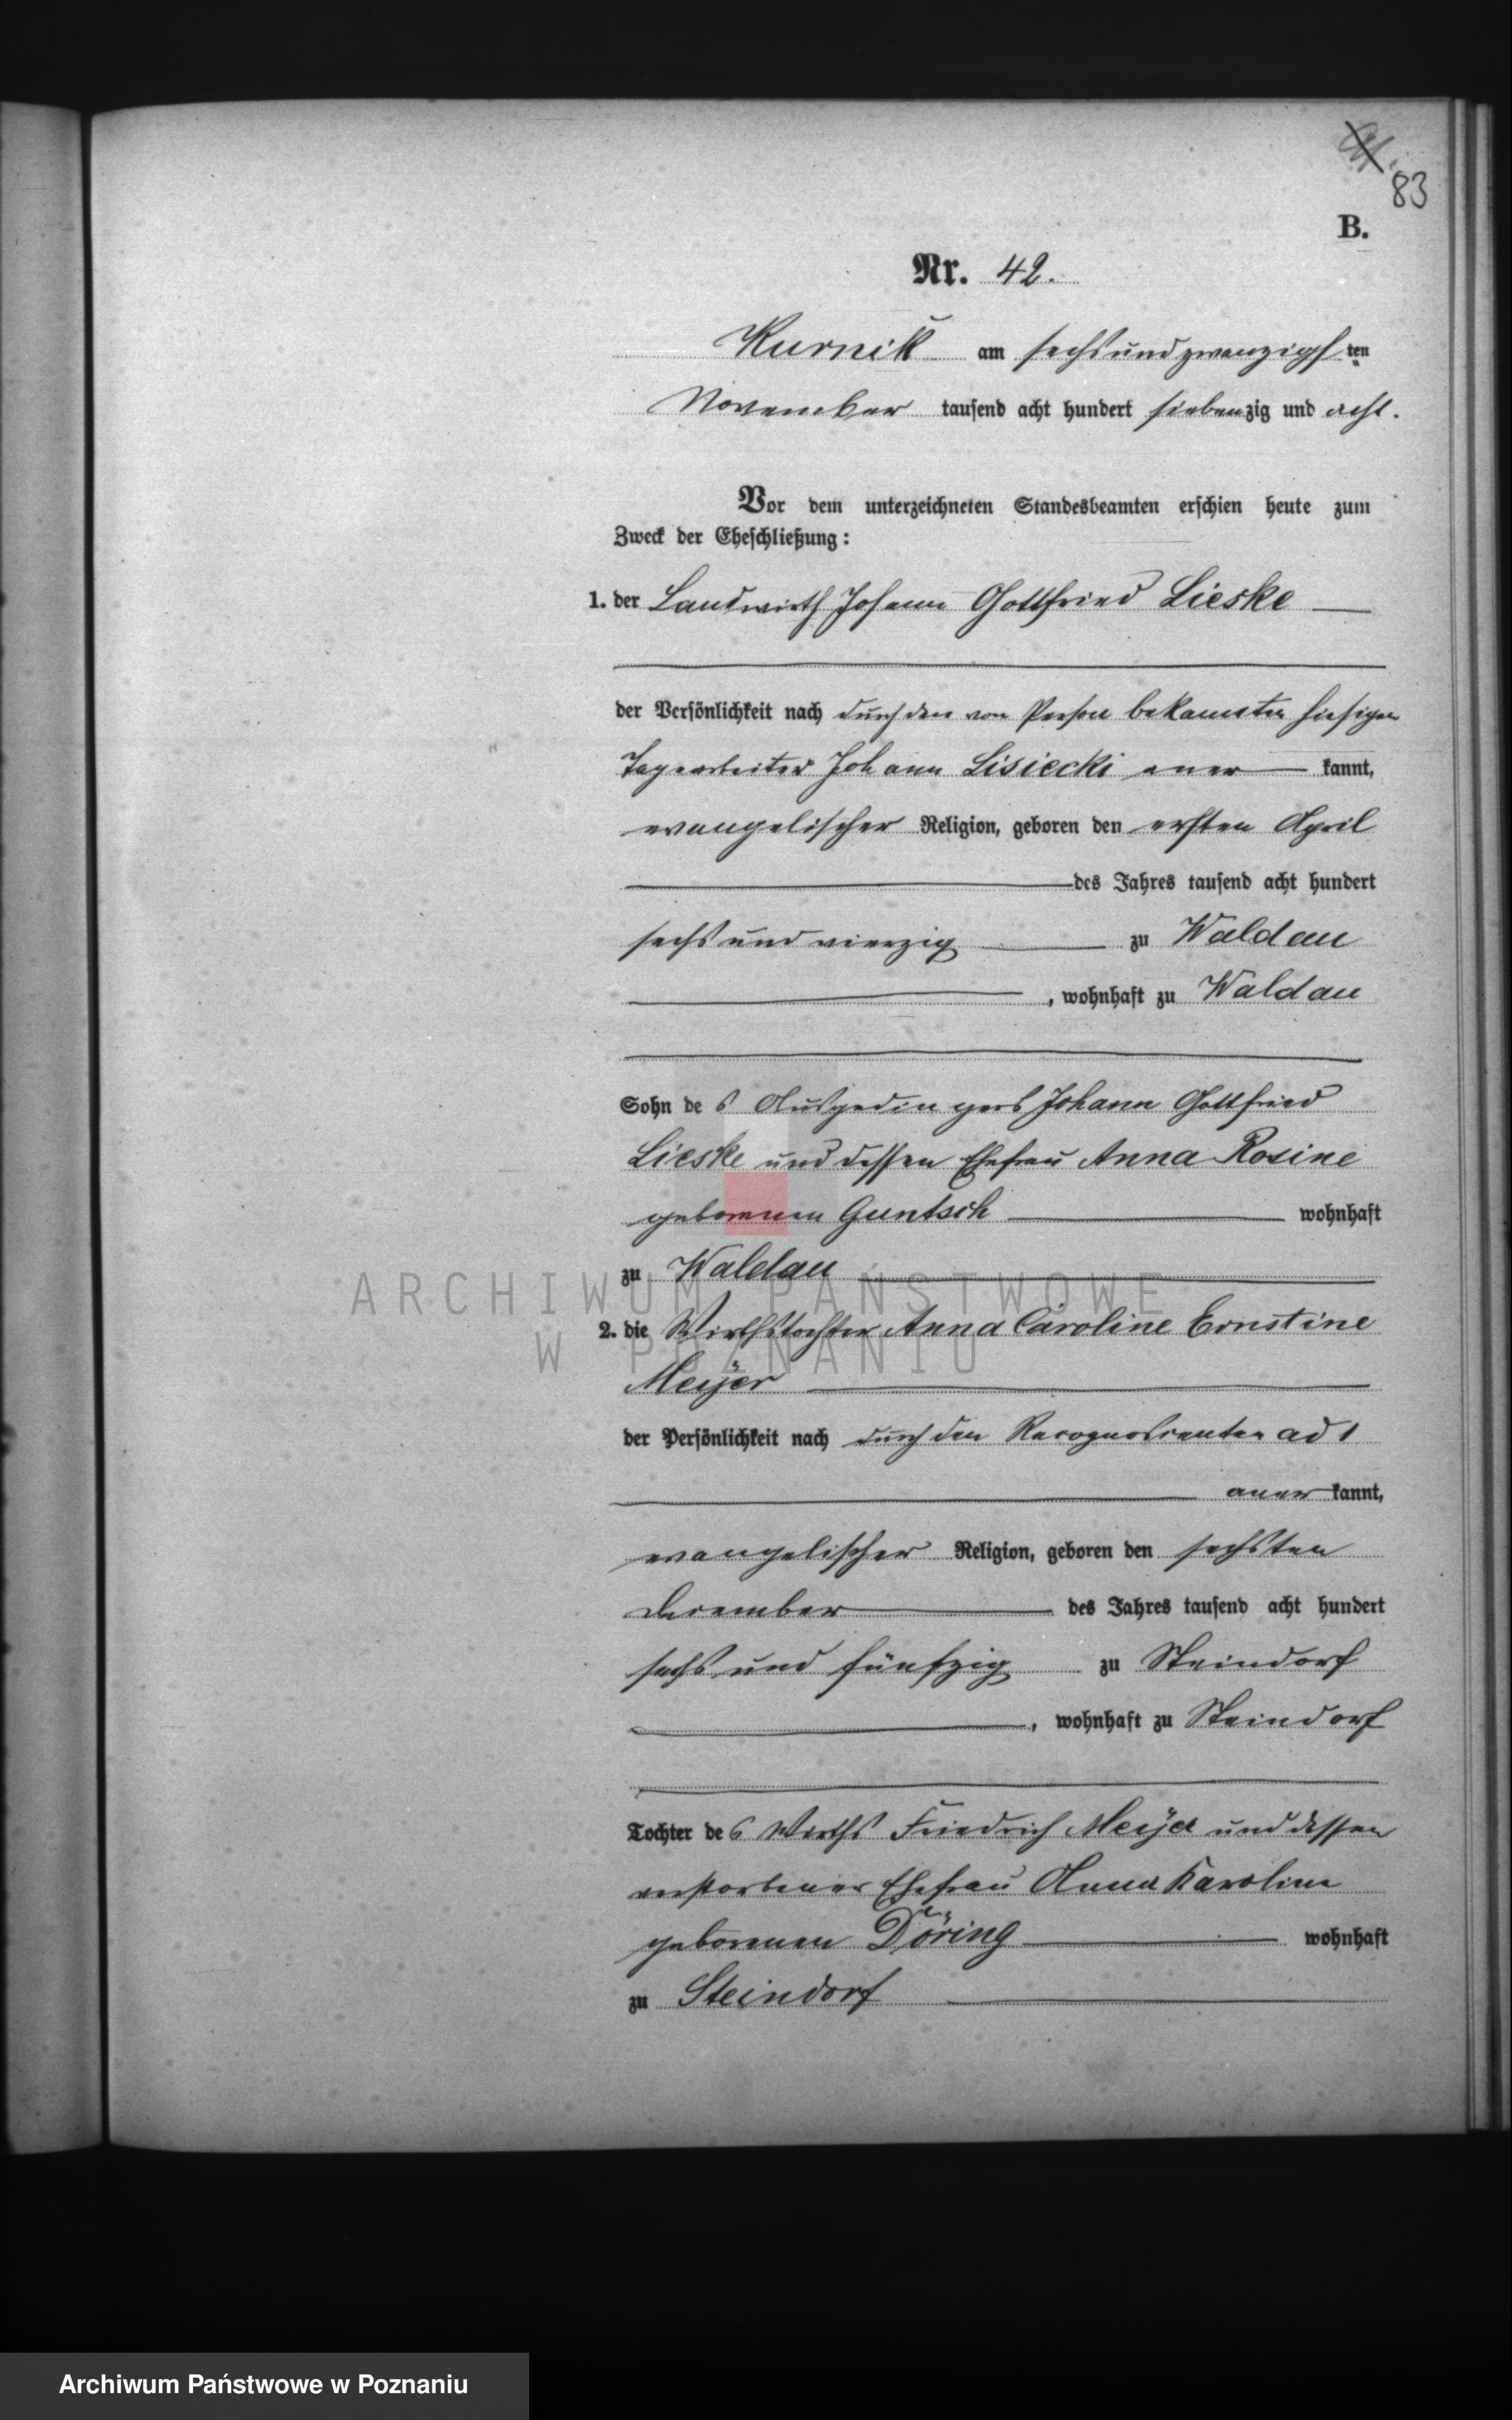 83
B.
Nr. 42.
Kurnik am sechsundzwanzigsten
November tausend acht hundert siebenzig und acht.
Vor dem unterzeichneten Standesbeamten erschien heute zum
Zweck der Eheschließung:
1. der Landwirth Johann Gottfried Lieske
der Persönlichkeit nach durch den von Person bekannten hiesigen
Tagearbeiter Johann Lisiecki aner kannt,
evangelischer Religion, geboren den ersten April
des Jahres tausend acht hundert
sechs und vierzig zu Waldau
, wohnhaft zu Waldau
Sohn des Ausgedingers Johann Gottfried
Lieske und dessen Ehefrau Anna Rosine
geborenen Guntsch wohnhaft
zu Waldau
ARCHIWUM PAŃSTWOWE
2. die Wirthstochter Anna Caroline Ernstine
W POZNANIU
Meÿer
der Persönlichkeit nach durch den Recognoscenten ad 1
aner kannt,
evangelischer Religion, geboren den sechsten
December des Jahres tausend acht hundert
sechs und fünfzig zu Steindorf
, wohnhaft zu Steindorf
Tochter des Wirths Friedrich Meÿer und dessen
verstorbener Ehefrau Anna Karoline
geborenen Döring wohnhaft
zu Steindorf
Archiwum Państwowe w Poznaniu